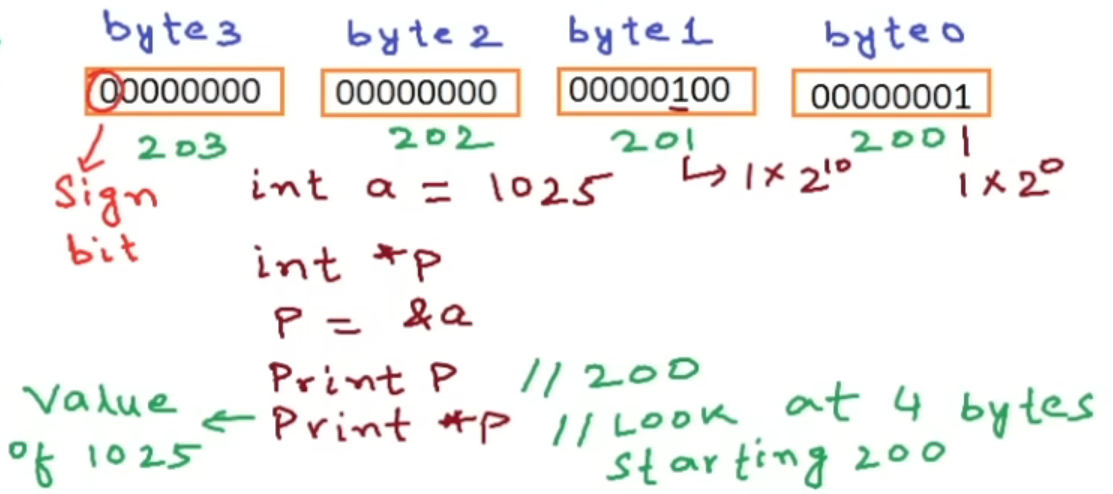 byte3 byte 2 byte1 byte0
00000000 00000000 00000100 00000001
203 202 201 200
Sign bit
int a = 1025 ↳ 1 × 2¹⁰ 1 × 2⁰
int *p
P = &a
Print P // 200
Print *p // Look at 4 bytes starting 200
Value of 1025